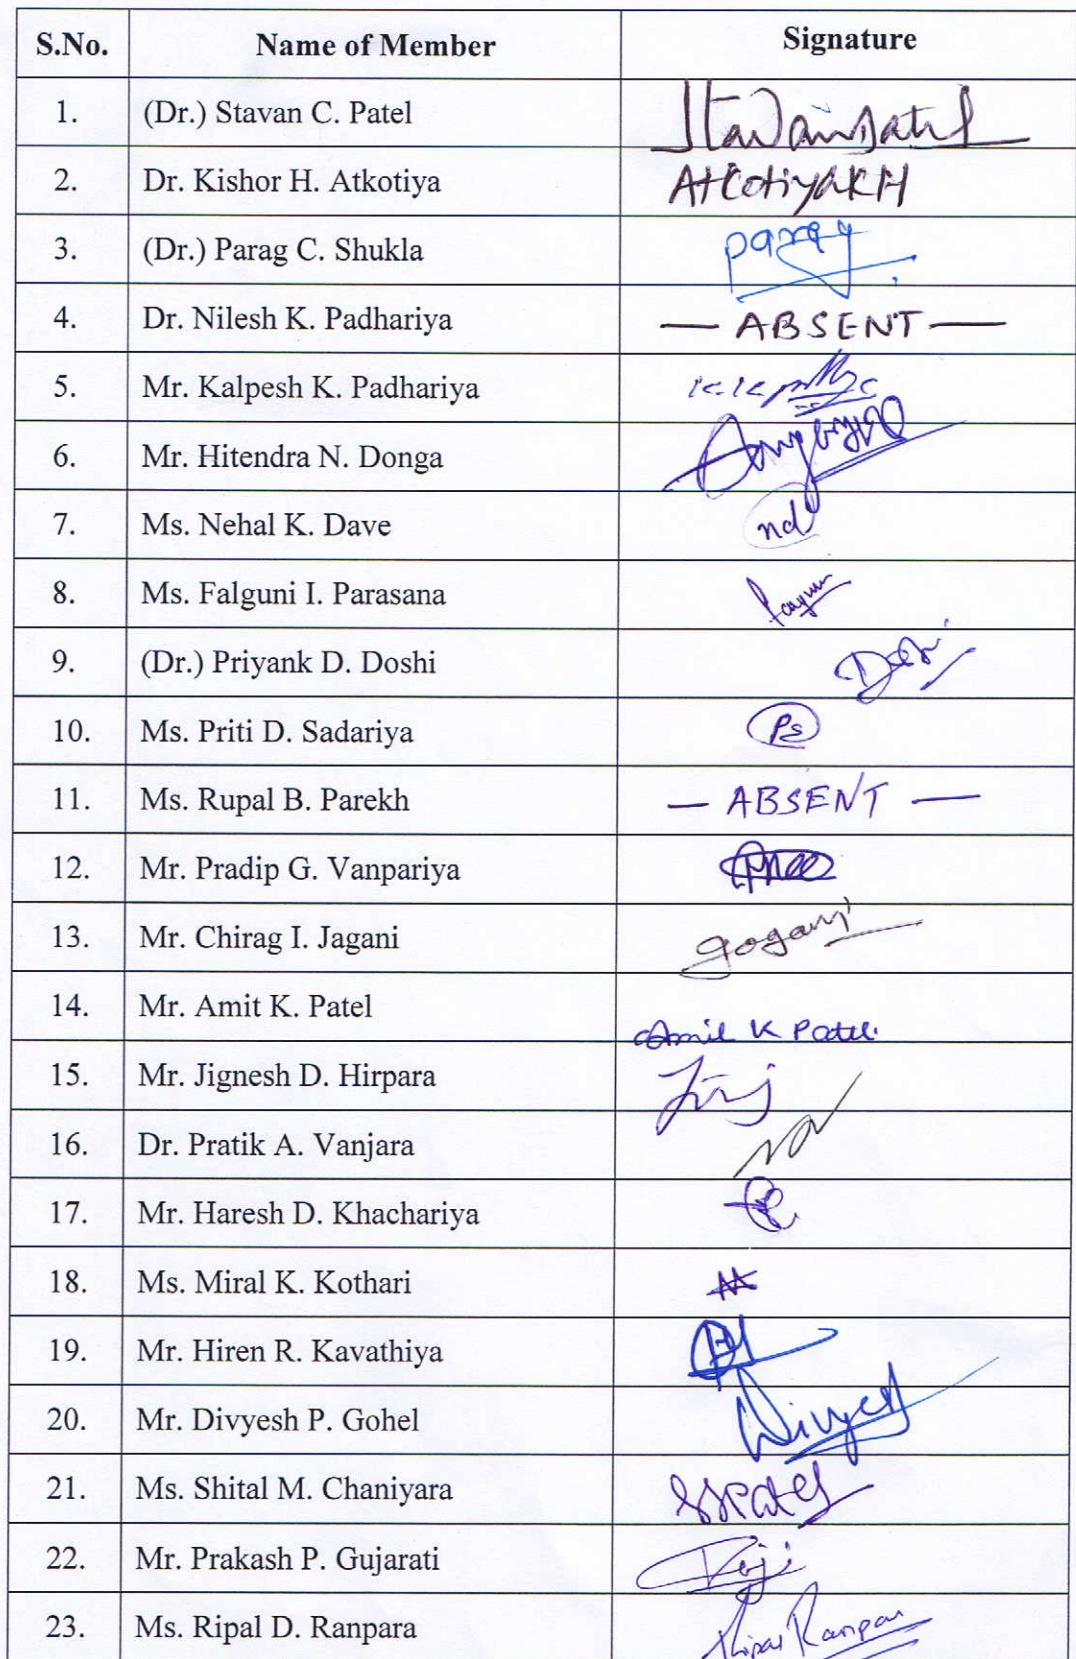 S.No. Name of Member Signature
1. (Dr.) Stavan C. Patel StavanPatel
2. Dr. Kishor H. Atkotiya AtkotiyaKH
3. (Dr.) Parag C. Shukla parag
4. Dr. Nilesh K. Padhariya — ABSENT —
5. Mr. Kalpesh K. Padhariya
6. Mr. Hitendra N. Donga
7. Ms. Nehal K. Dave nd
8. Ms. Falguni I. Parasana
9. (Dr.) Priyank D. Doshi
10. Ms. Priti D. Sadariya Ps
11. Ms. Rupal B. Parekh — ABSENT —
12. Mr. Pradip G. Vanpariya
13. Mr. Chirag I. Jagani
14. Mr. Amit K. Patel Amit K Patel
15. Mr. Jignesh D. Hirpara
16. Dr. Pratik A. Vanjara
17. Mr. Haresh D. Khachariya
18. Ms. Miral K. Kothari
19. Mr. Hiren R. Kavathiya
20. Mr. Divyesh P. Gohel Divyesh
21. Ms. Shital M. Chaniyara
22. Mr. Prakash P. Gujarati
23. Ms. Ripal D. Ranpara Ripal Ranpara